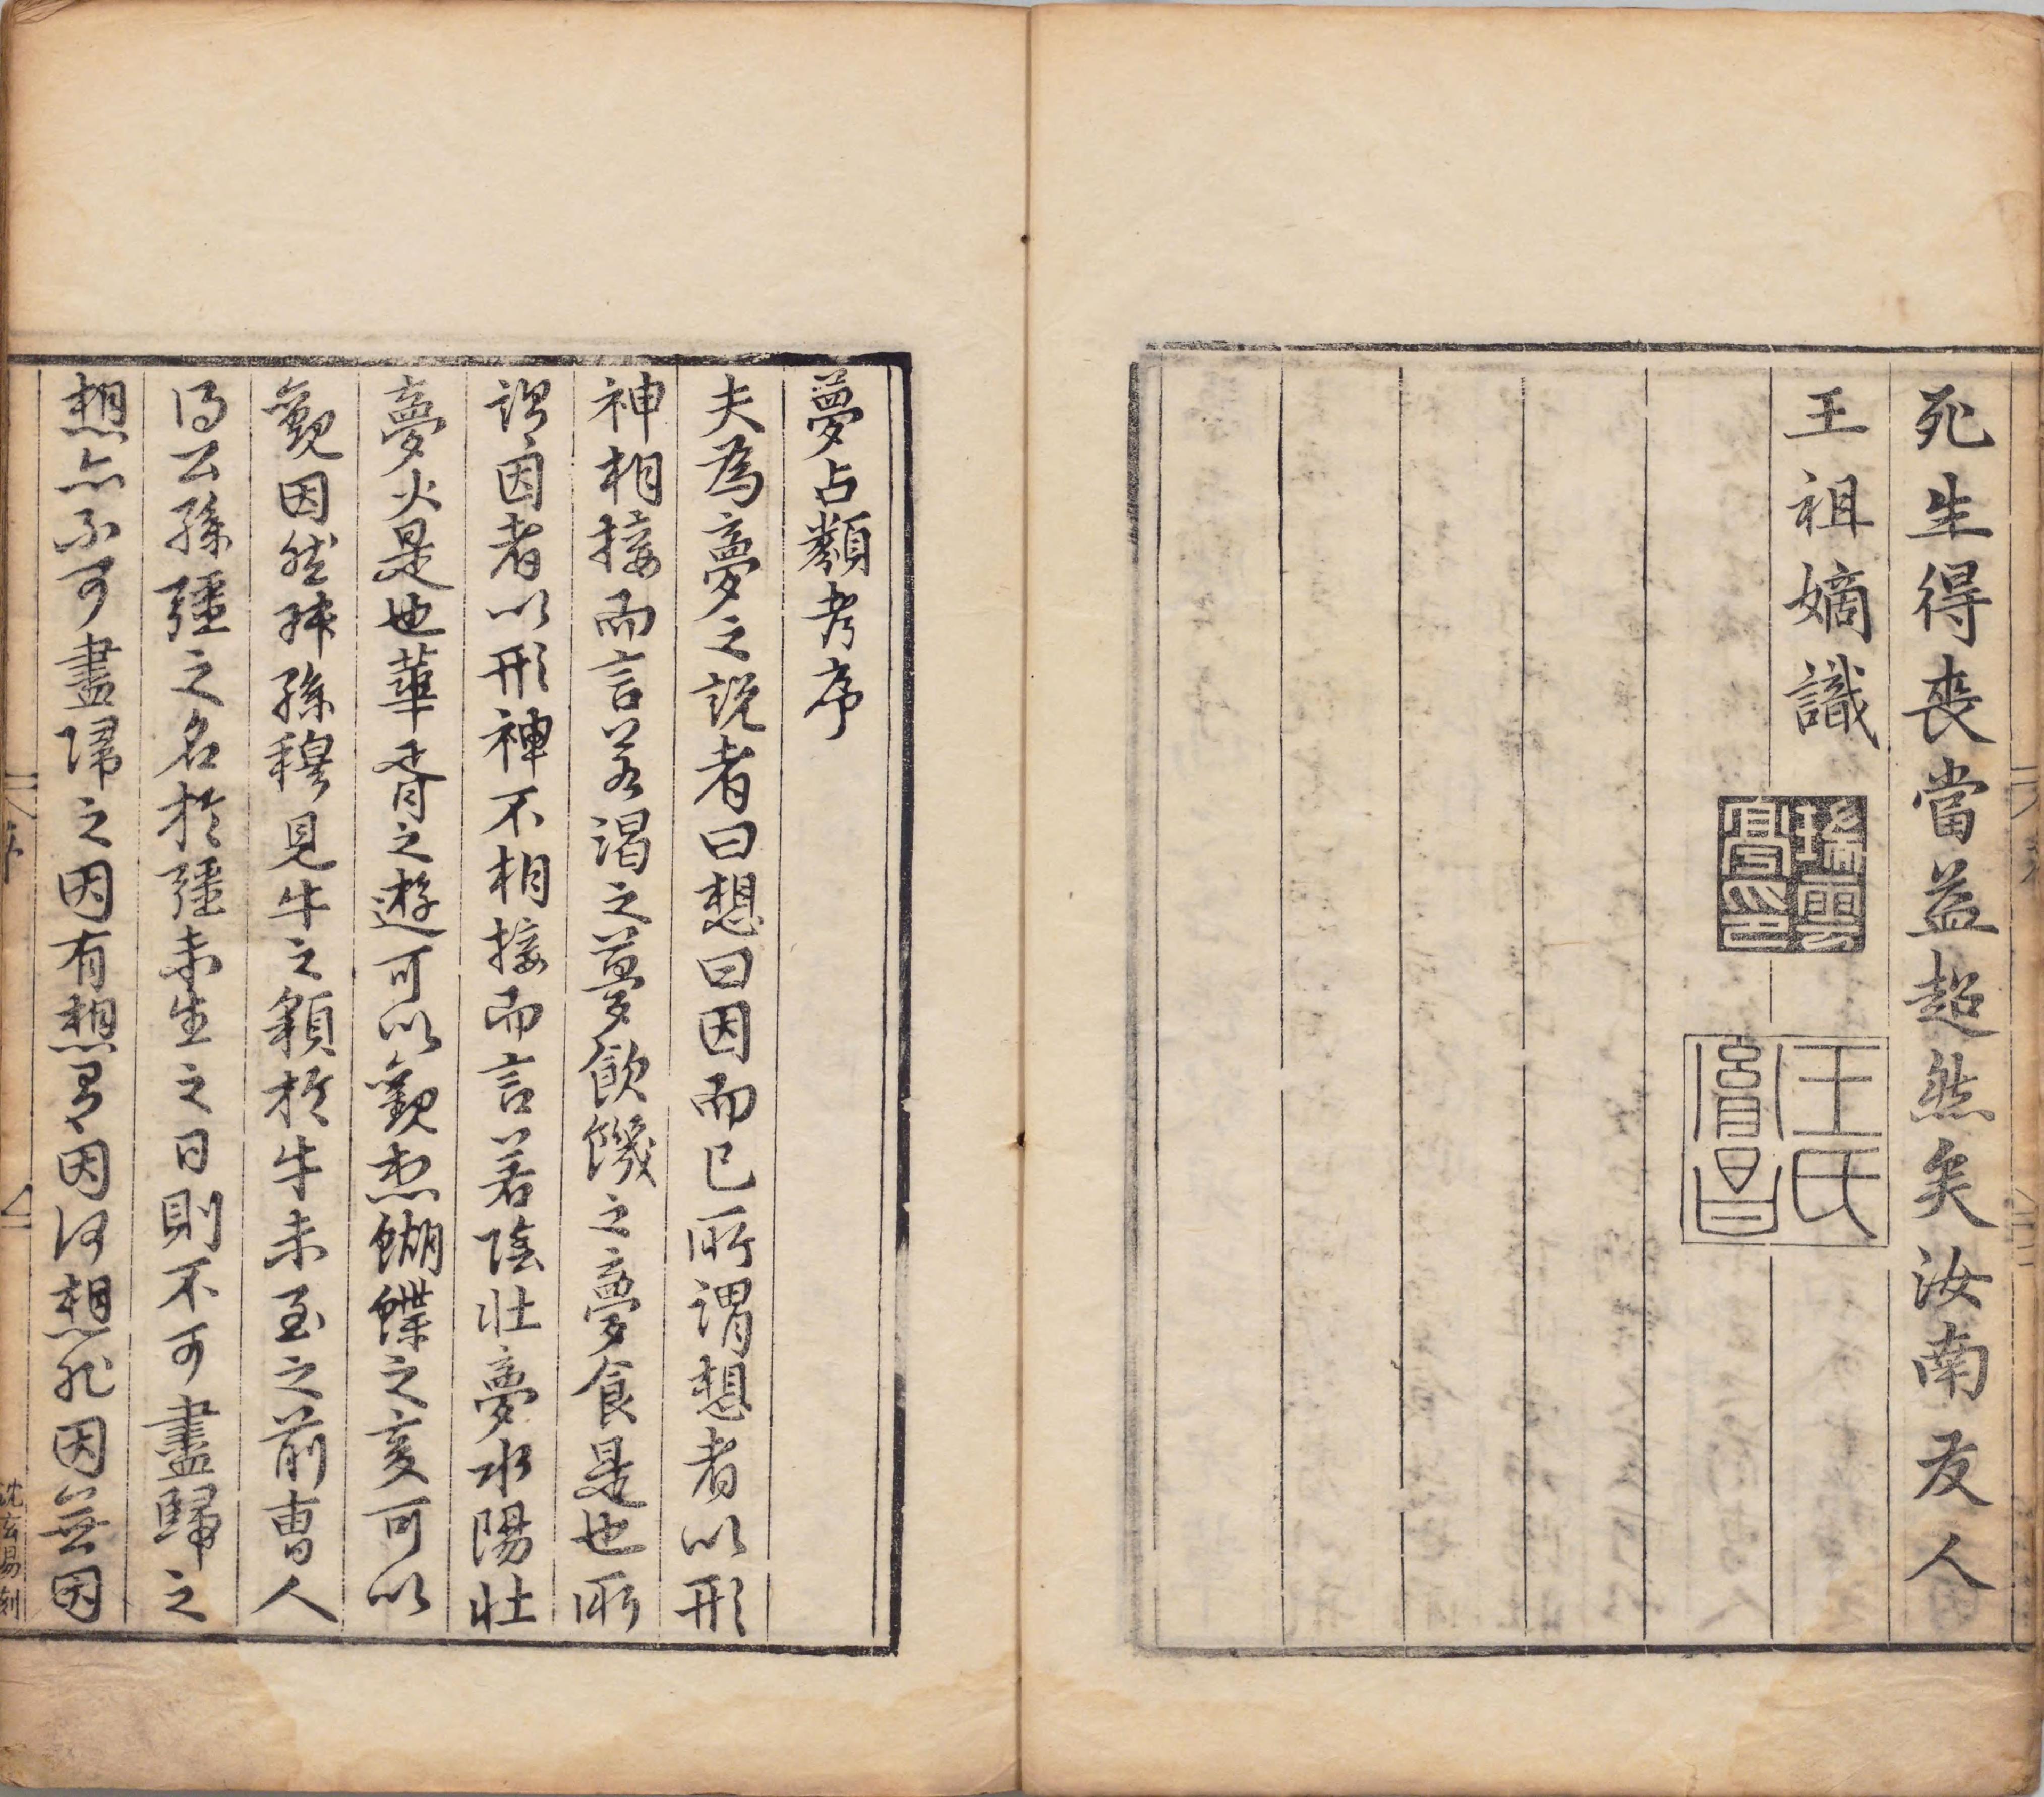 死生得喪當益超然矣汝南友人
王祖嫡識
王氏
胤昌
夢占類考序
夫為夢之說者曰想曰因而已所謂想者以形
神相接而言若渴之夢飲饑之夢食是也所
謂因者以形神不相接而言若陰壯夢水陽壯
夢火是也華胥之遊可以觀想蝴蝶之変可以
觀因然叔孫穆見牛之貌於牛未至之前曹人
得公孫彊之名於彊未生之日則不可盡歸之
想亦不可盡歸之因有想有因何想非因無因
沈玄易刻